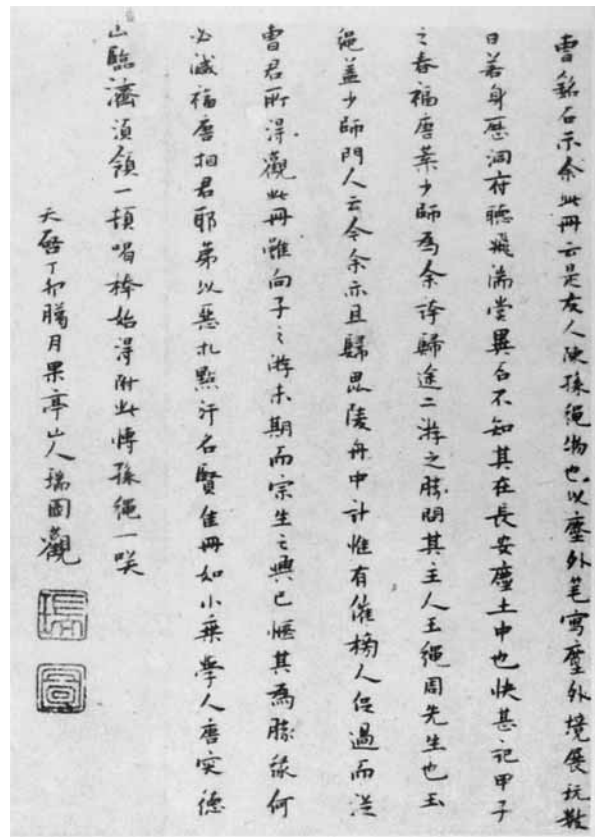 曹銘石示余此冊云是友人陳孫繩物也以塵外筆寫塵外境展玩數
日若身歷洞府聽飛湍嘗異石不知其在長安塵土中也快甚記甲子
之春福唐葉少師為余誇歸途二游之勝問其主人王繩周先生也玉
繩蓋少師門人云今余亦且歸毘陵舟中計惟有催榜人促過而從
曹君所得觀此冊雖向子之游未期而宗生之興已愜其為勝緣何
必減福唐相君耶第以惡札點汙名賢佳冊如小乘學人唐突德
山臨濟須領一頓喝棒始得附此博孫繩一咲
天啓丁卯臘月果亭山人瑞圖觀
瑞
圖